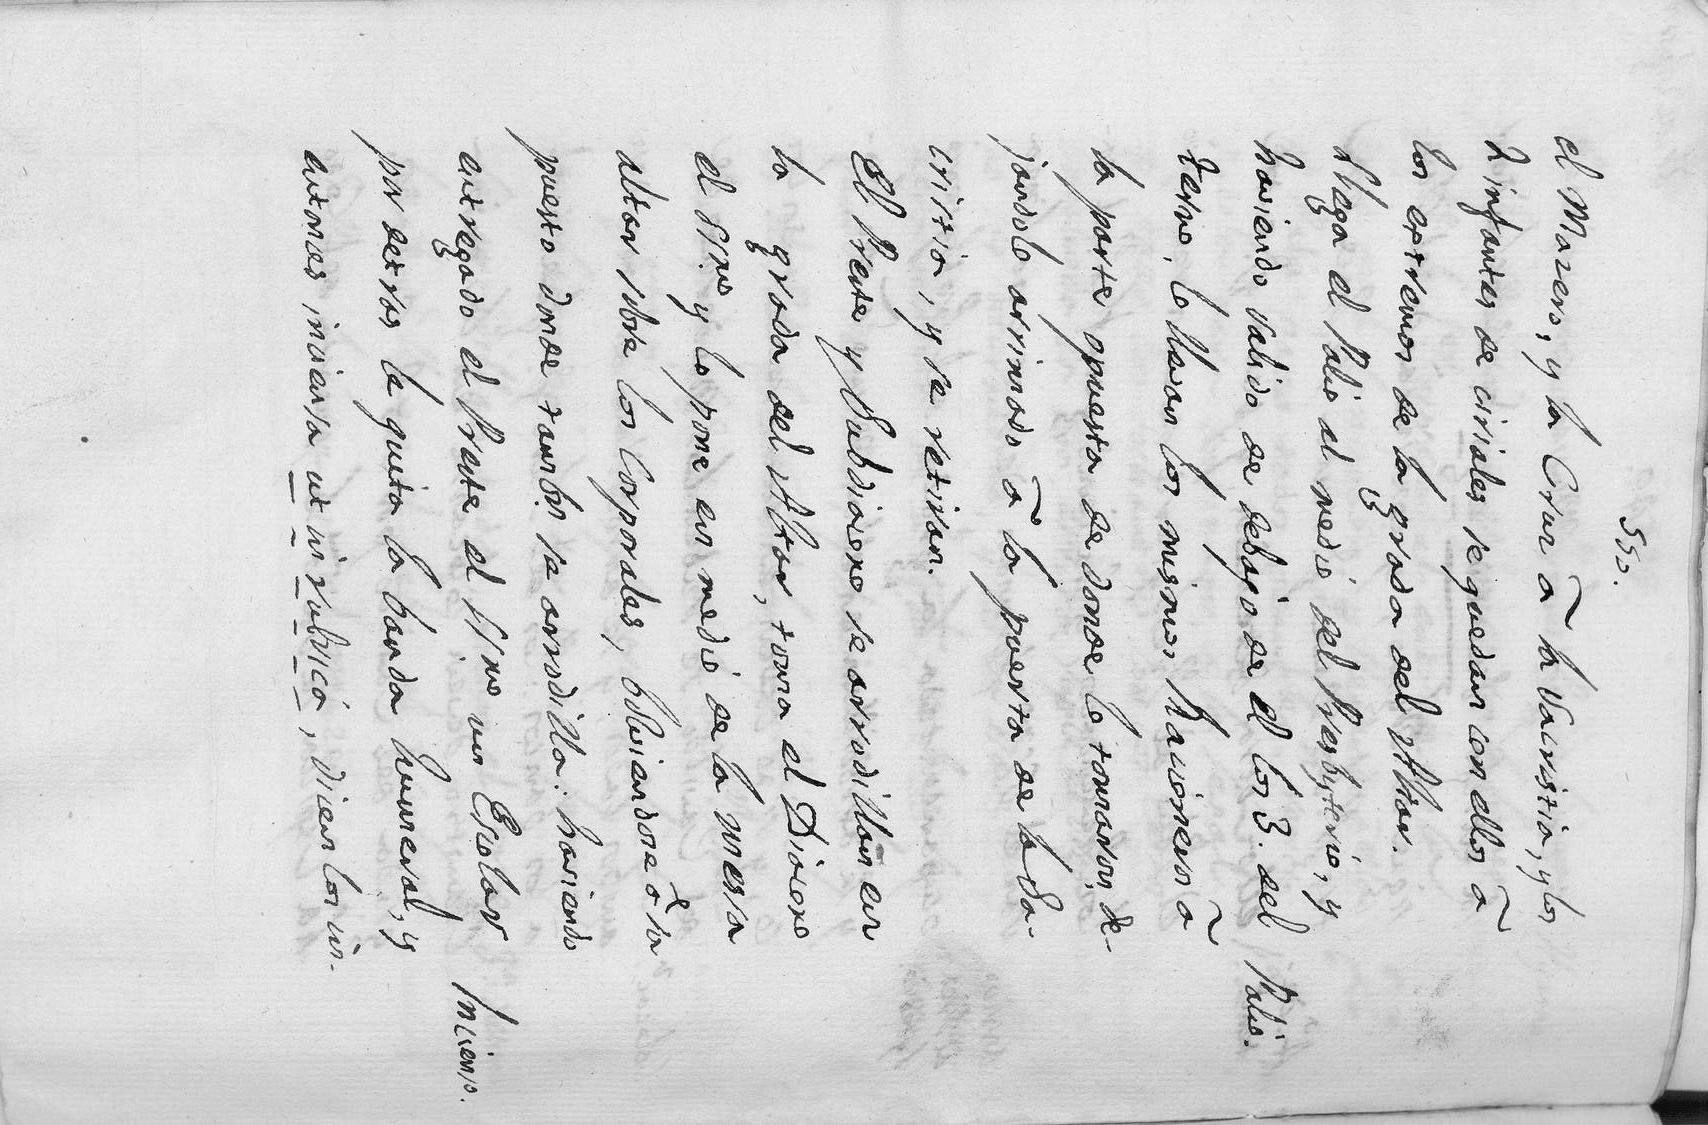 550.
el Mazero, y la Cruz â la Sacristia, y los
2 infantes de ciriales se quedan con ellos â
los extremos de la grada del Altar.
Llega el Palio al medio del Presbyterio, y
haviendo salido de debajo de el los 3. del
terno, le llevan los mismos Racioneros â
la parte opuesta de donde le tomaron, de-
jandole arrimado â la puerta de la Sa-
cristia, y se retiran.
El Preste y Subdiacono se arrodillan en
la grada del Altar, toma el Diacono
el SSmo y lo pone en medio de la messa
altar sobre los Corporales, bolviendose â su
puesto donde tambn se arrodilla: haviendo
entregado el Preste el SSmo un Escolar
por detras le quita la banda humeral, y
entonces inciensa ut in rubrica, dicen los in-
Palio.
Incienso.